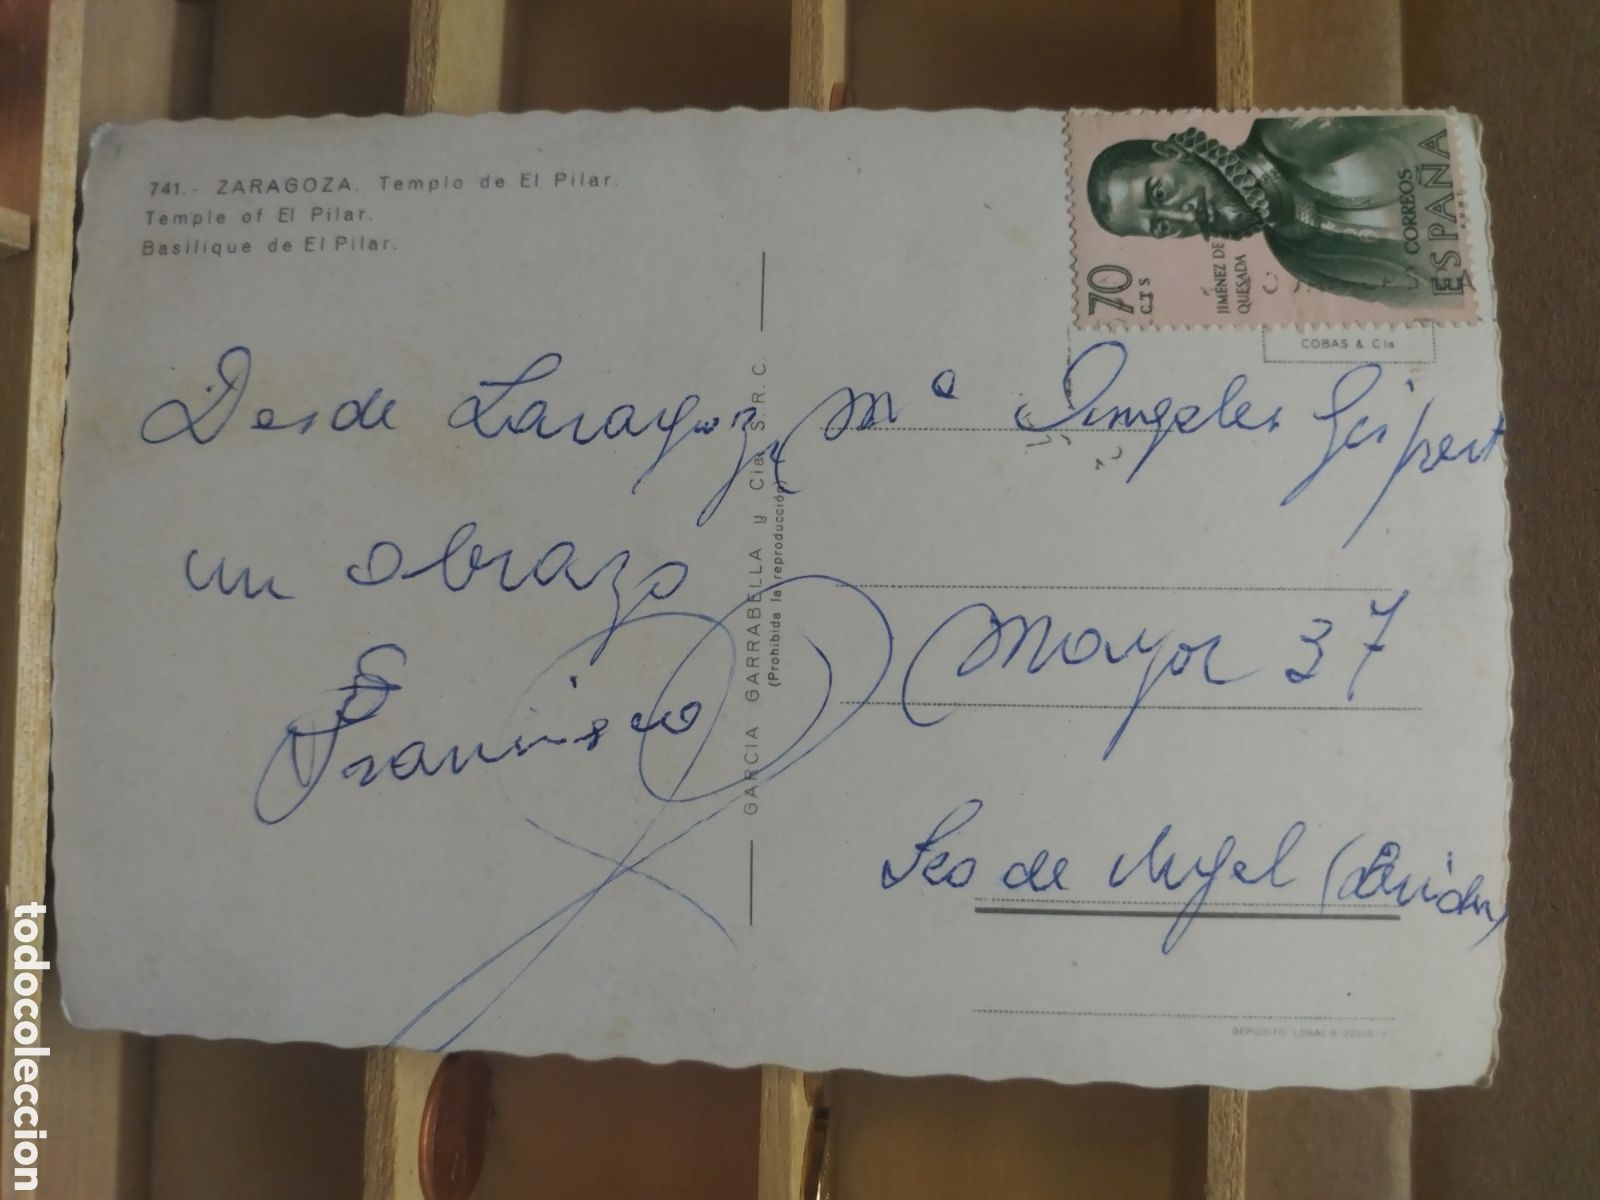 741.- ZARAGOZA. Templo de El Pilar.
Temple of El Pilar.
Basilique de El Pilar.
Desde Zaragoza,
un abrazo
Francisco
GARCIA GARRABELLA y Cia. S. R. C.
(Prohibida la reproducción)
70
CTS
JIMÉNEZ DE
QUESADA
CORREOS
ESPAÑA
COBAS & Cia
Mª Angeles Gispert
Mayor 37
Seo de Urgel (Lérida)
DEPOSITO LEGAL B.
todocoleccion